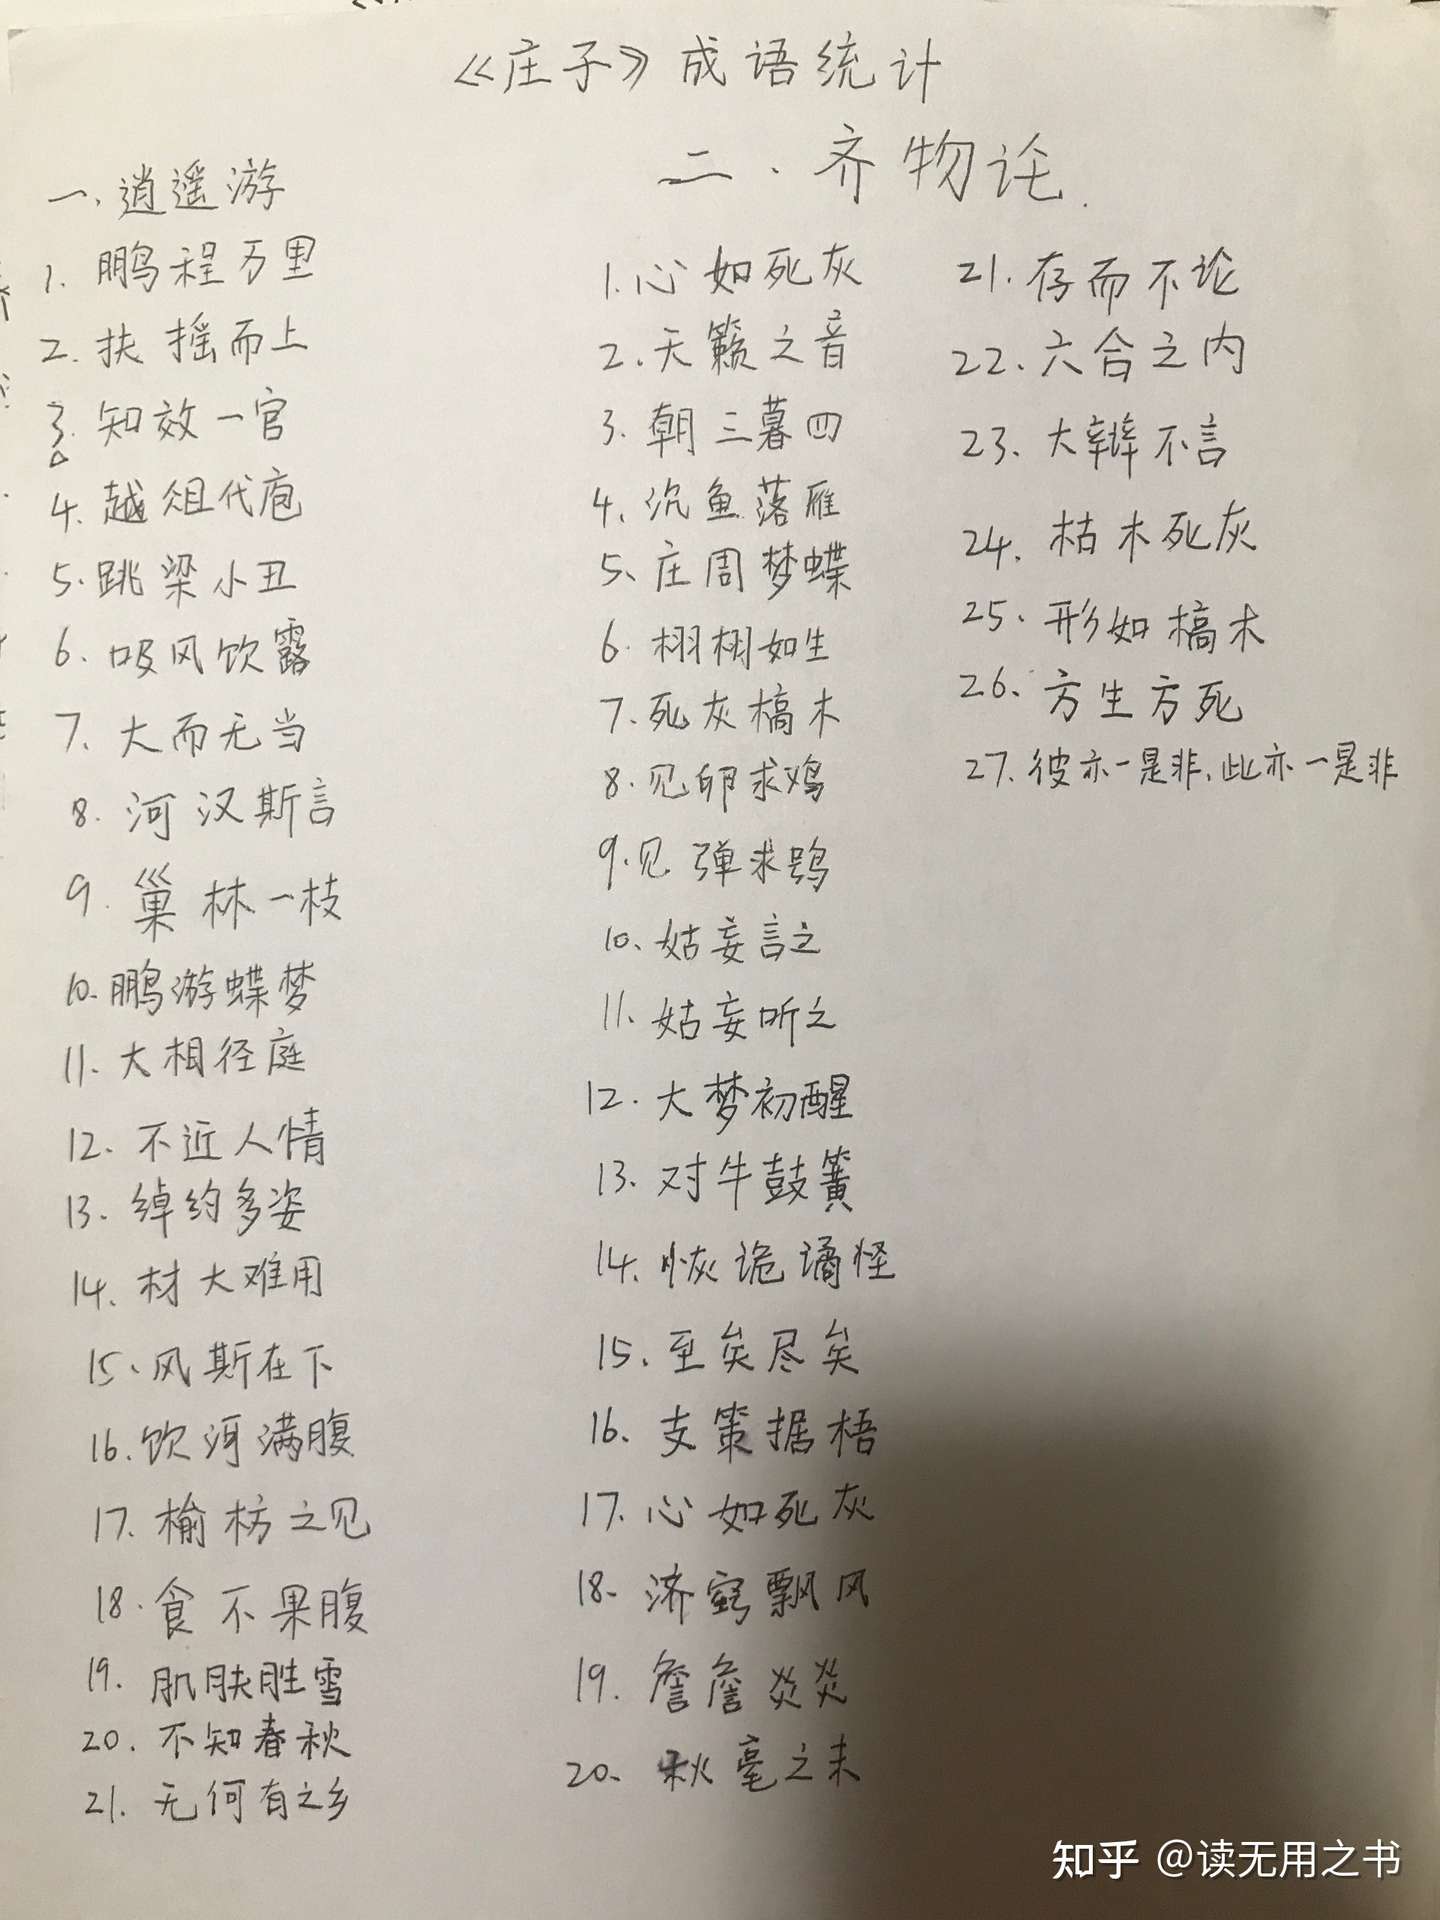 《庄子》成语统计
一、逍遥游
1. 鹏程万里
2. 扶摇而上
3. 知效一官
4. 越俎代庖
5. 跳梁小丑
6. 吸风饮露
7. 大而无当
8. 河汉斯言
9. 巢林一枝
10. 鹏游蝶梦
11. 大相径庭
12. 不近人情
13. 绰约多姿
14. 材大难用
15. 风斯在下
16. 饮河满腹
17. 榆枋之见
18. 食不果腹
19. 肌肤胜雪
20. 不知春秋
21. 无何有之乡
二、齐物论
1. 心如死灰
2. 天籁之音
3. 朝三暮四
4. 沉鱼落雁
5. 庄周梦蝶
6. 栩栩如生
7. 死灰槁木
8. 见卵求鸡
9. 见弹求鸮
10. 姑妄言之
11. 姑妄听之
12. 大梦初醒
13. 对牛鼓簧
14. 恢诡谲怪
15. 至矣尽矣
16. 支策据梧
17. 心如死灰
18. 济窍飘风
19. 詹詹炎炎
20. 秋毫之末
21. 存而不论
22. 六合之内
23. 大辩不言
24. 枯木死灰
25. 形如槁木
26. 方生方死
27. 彼亦一是非、此亦一是非
知乎 @读无用之书